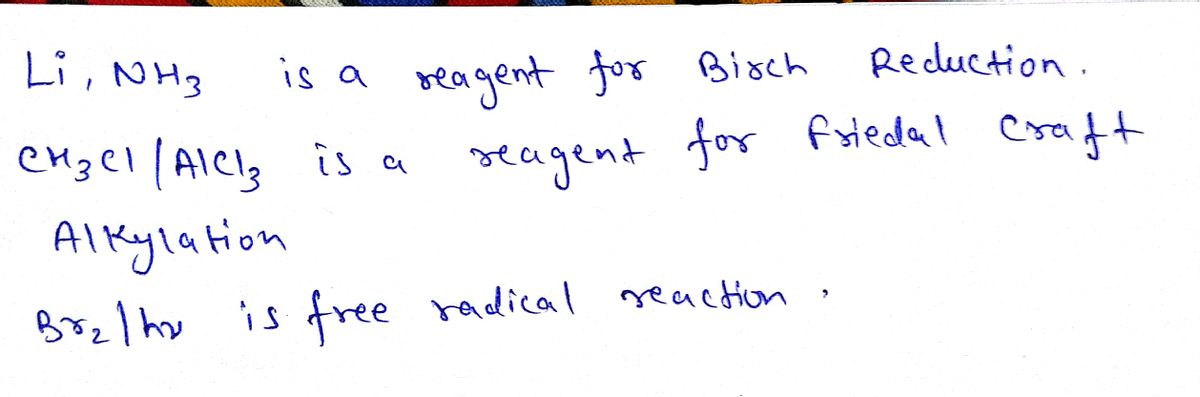 Li, NH3 is a reagent for Birch Reduction.
CH3Cl/AlCl3 is a reagent for friedal Craft
Alkylation
Br2/hν is free radical reaction.